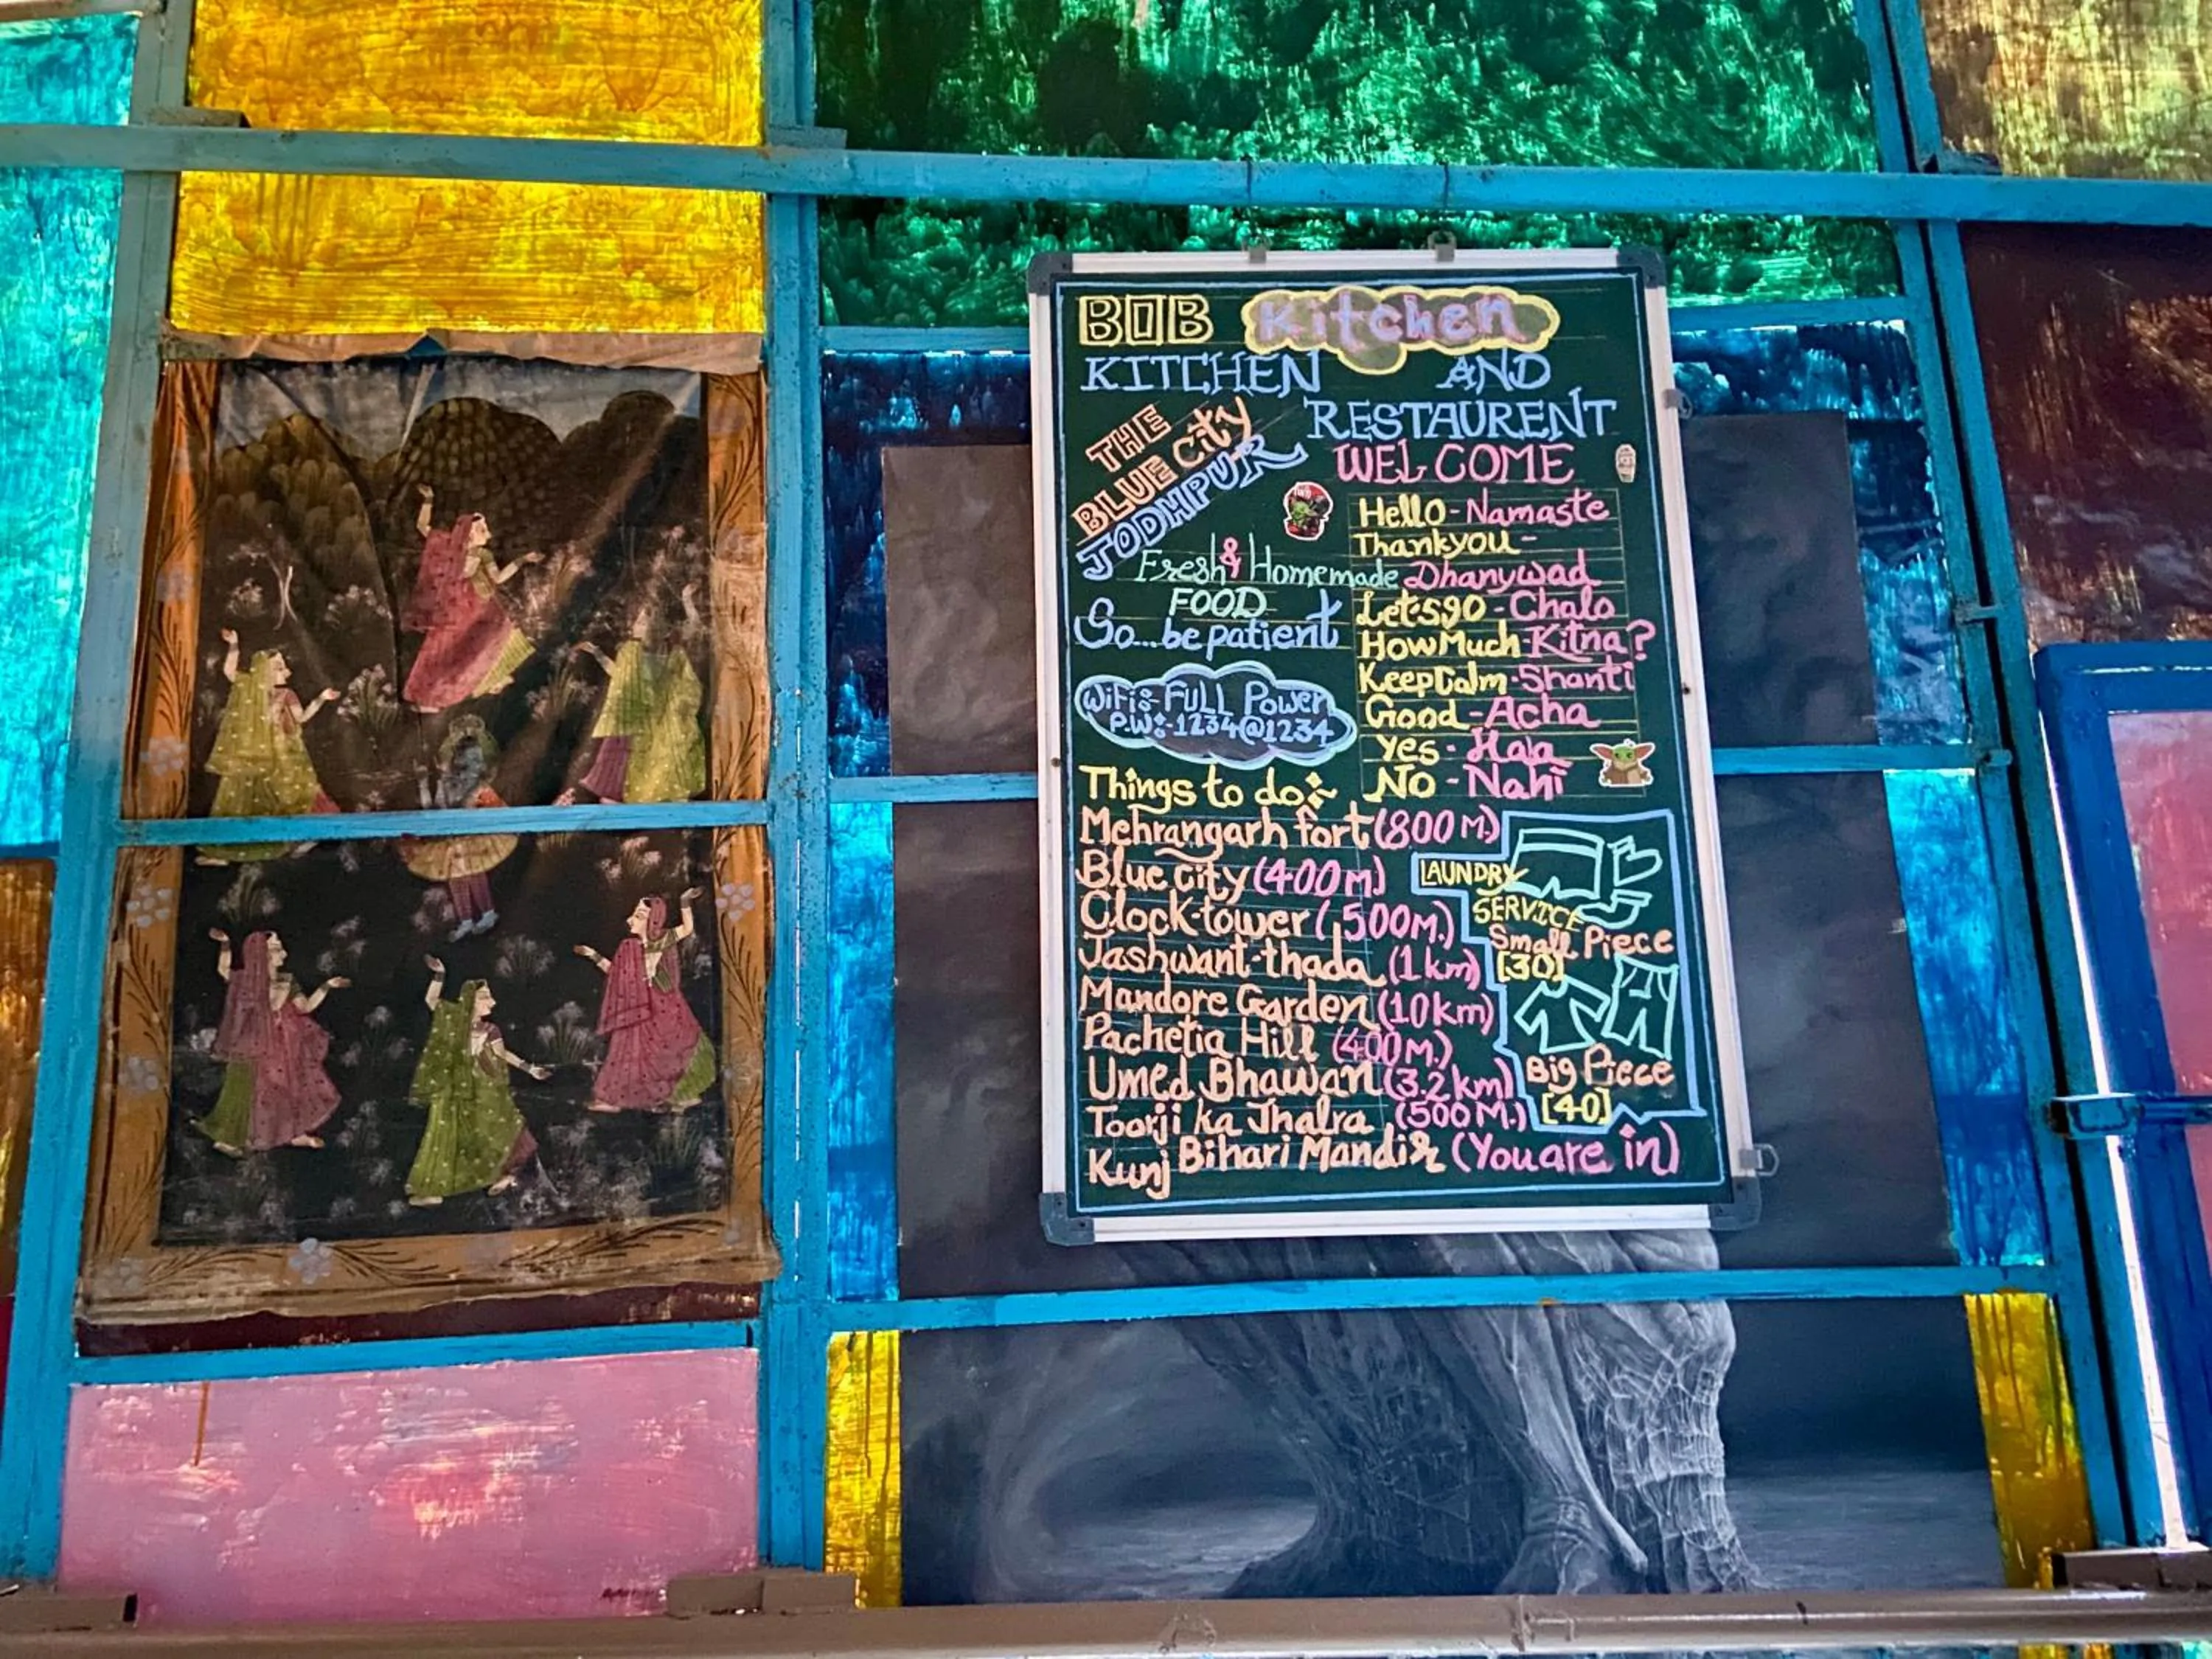 BOB Kitchen
KITCHEN AND
RESTAURENT
THE
BLUE City
JODHPUR
WELCOME
Fresh & Homemade
FOOD
So...be patient
Hello - Namaste
Thankyou -
Dhanywad
Let's go - Chalo
How Much - Kitna?
Keep Calm - Shanti
Good - Acha
Yes - Haa
No - Nahi
WiFi:- FULL Power
P.W:-1234@1234
Things to do:
Mehrangarh fort (800 M.)
Blue city (400 m.)
Clock-tower (500m.)
Jashwant-thada (1 km)
Mandore Garden (10 km)
Pachetia Hill (400 M.)
Umed Bhawan (3.2 km)
Toorji ka Jhalra (500 M.)
Kunj Bihari Mandir (You are in)
LAUNDRY
SERVICE
Small Piece
[30]
Big Piece
[40]